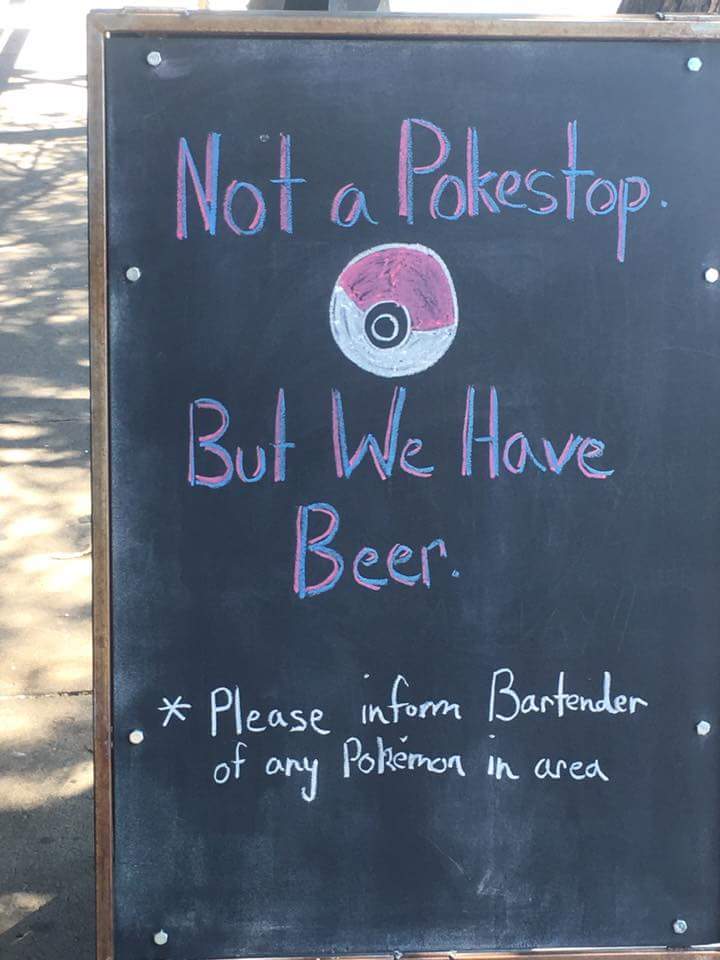 Not a Pokestop.
But We Have
Beer.
* Please inform Bartender
of any Pokémon in area